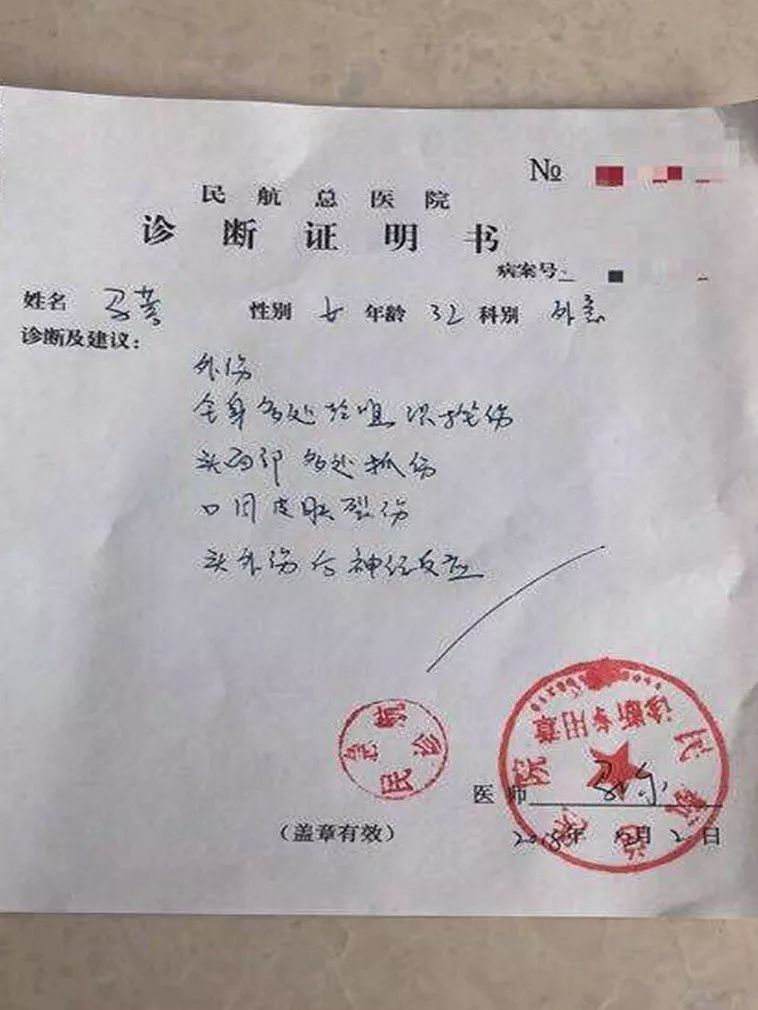 №
民航总医院
诊断证明书
病案号
姓名 马 性别 女 年龄 32 科别 外急
诊断及建议：
外伤
全身多处 软组织挫伤
头面部 多处抓伤
口周皮肤裂伤
头外伤后神经反应
民航
急诊
民航总医院
诊断专用章
医师
（盖章有效）
2018年 12月 2日